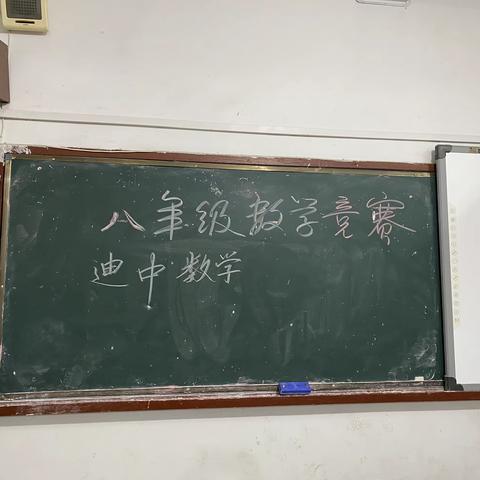 八年级数学竞赛
迪中数学